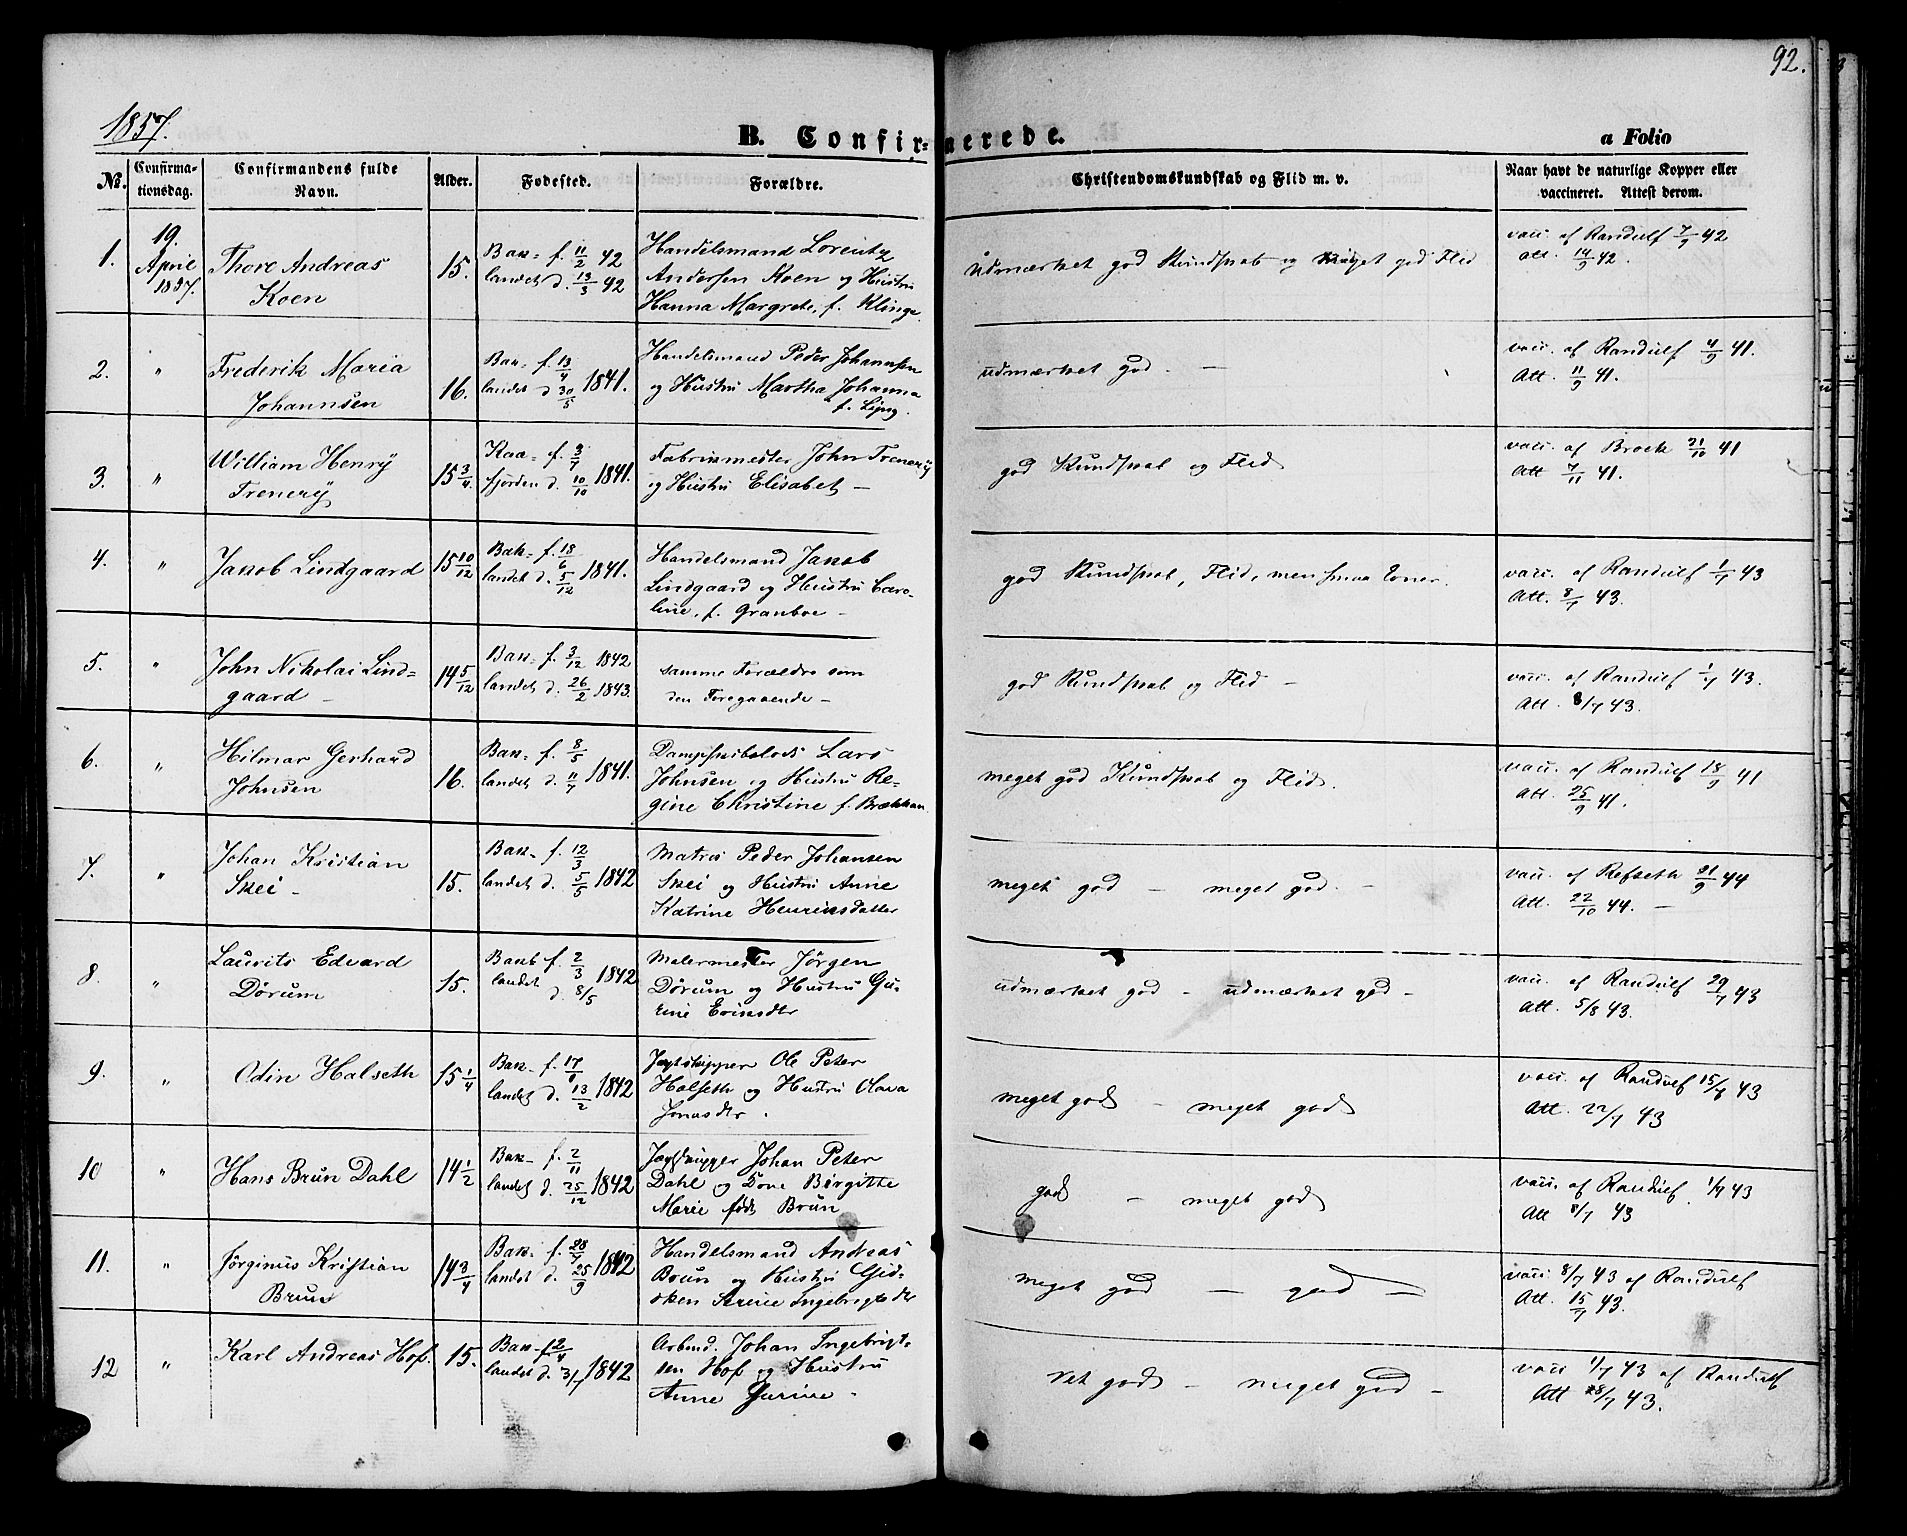 92.
1857.
B. Confirmerede.
a Folio
No.
Confirmationsdag.
Confirmandens fulde Navn.
Alder.
Fødested.
Forældre.
Christendomskundskab og Flid m. v.
Naar havt de naturlige Kopper eller vaccineret. Attest derom.
1.
19. April 1857.
Thore Andreas
Koen
15.
Bak- f. 11/2 42
landet d. 13/3 42
Handelsmand Lorentz
Andersen Koen og Hustru
Hanna Margrete, f. Klinge.
Udmærket god Kundskab og meget god Flid
vacc. af Randulf 7/9 42
att. 14/9 42.
2.
"
Frederik Maria
Johannsen
16.
Bak- f. 13/4
landet d 30/5 1841.
Handelsmand Peder Johannsen
og Hustru Martha Johanna
f. Lyng.
udmærket god. —
vacc. af Randulf 4/9 41.
Att. 11/9 41.
3.
"
William Henry
Trenery
15 3/4.
Kaa- f. 3/7
fjorden d. 10/10 1841.
Fabrikmester John Trenery
og Hustru Elisabet —
god Kundskab og Flid
vacc. af Brock 21/10 41
Att 7/11 41.
4.
"
Jakob Lindgaard
15 10/12
Bak- f. 18/6
landet d. 5/12 1841.
Handelsmand Jakob
Lindgaard og Hustru Caro-
line, f. Granboe —
god Kundskab, Flid, men smaa Evner.
vacc. af Randulf 1/7 43
Att. 8/7 43.
5.
"
John Nikolai Lind-
gaard —
14 5/12
Bak- f. 3/12 1842
landet d. 26/2 1843.
samme Forældre som
den Foregaaende —
god Kundskab og Flid —
vacc. af Randulf 1/7 43.
Att. 8/7 43.
6.
"
Hilmar Gerhard
Johnsen
16.
Bak- f. 8/5
landet d. 11/7 1841.
Dampskibslods Lars
Johnsen og Hustru Re-
gine Christine f. Brækkan
meget god Kundskab og Flid.
vacc. af Randulf 18/9 41
Att. 25/9 41.
7.
"
Johan Kristian
Skei —
15.
Bak- f. 12/3
landet d. 5/5 1842
Matros Peder Johansen
Skei og Hustru Anne
Katrine Henriksdatter
meget god — meget god. —
vacc. af Refseth 21/9 44
Att. 22/10 44. —
8.
"
Laurits Edvard
Dørum
15.
Bak- f. 2/3
landet d. 8/5 1842
Malermester Jørgen
Dørum og Hustru Gu-
rine Eriksdtr
udmærket god — udmærket god —
vacc. af Randulf 29/7 43
Att. 5/8 43.
9.
"
Odin Halseth
15 1/4
Bak- f. 17/
landet d. 13/2 1842
Jagtskipper Ole Peter
Halseth og Hustru Olava
Jonasdtr.
meget god — meget god
vacc. af Randulf 15/7 43
Att. 22/7 43
10
"
Hans Brun Dahl
14 1/2
Bak- f. 2/11
landet d. 25/12 1842
Jagtskipper Johan Peter
Dahl og Kone Birgitte
Marie født Brun
god — meget god
vacc. af Randulf. 1/7 43
Att 8/7 43
11.
"
Jørginus Kristian
Brun
14 3/4
Bak- f. 28/7
landet d. 25/9 1842
Handelsmand Andreas
Brun og Hustru Gid-
sken Serine Ingebrigtsdtr
meget god — god —
vacc 8/7 43 af Randulf
Att. 15/7 43.
12
"
Karl Andreas Hof.
15.
Bak- f 2/4
landet d. 3/7 1842
Arbmd. Johan Ingebrigt-
sen Hof og Hustru
Anne Gurine —
ret god — meget god —
vacc 1/7 43 af Randulf
Att 8/7 43.